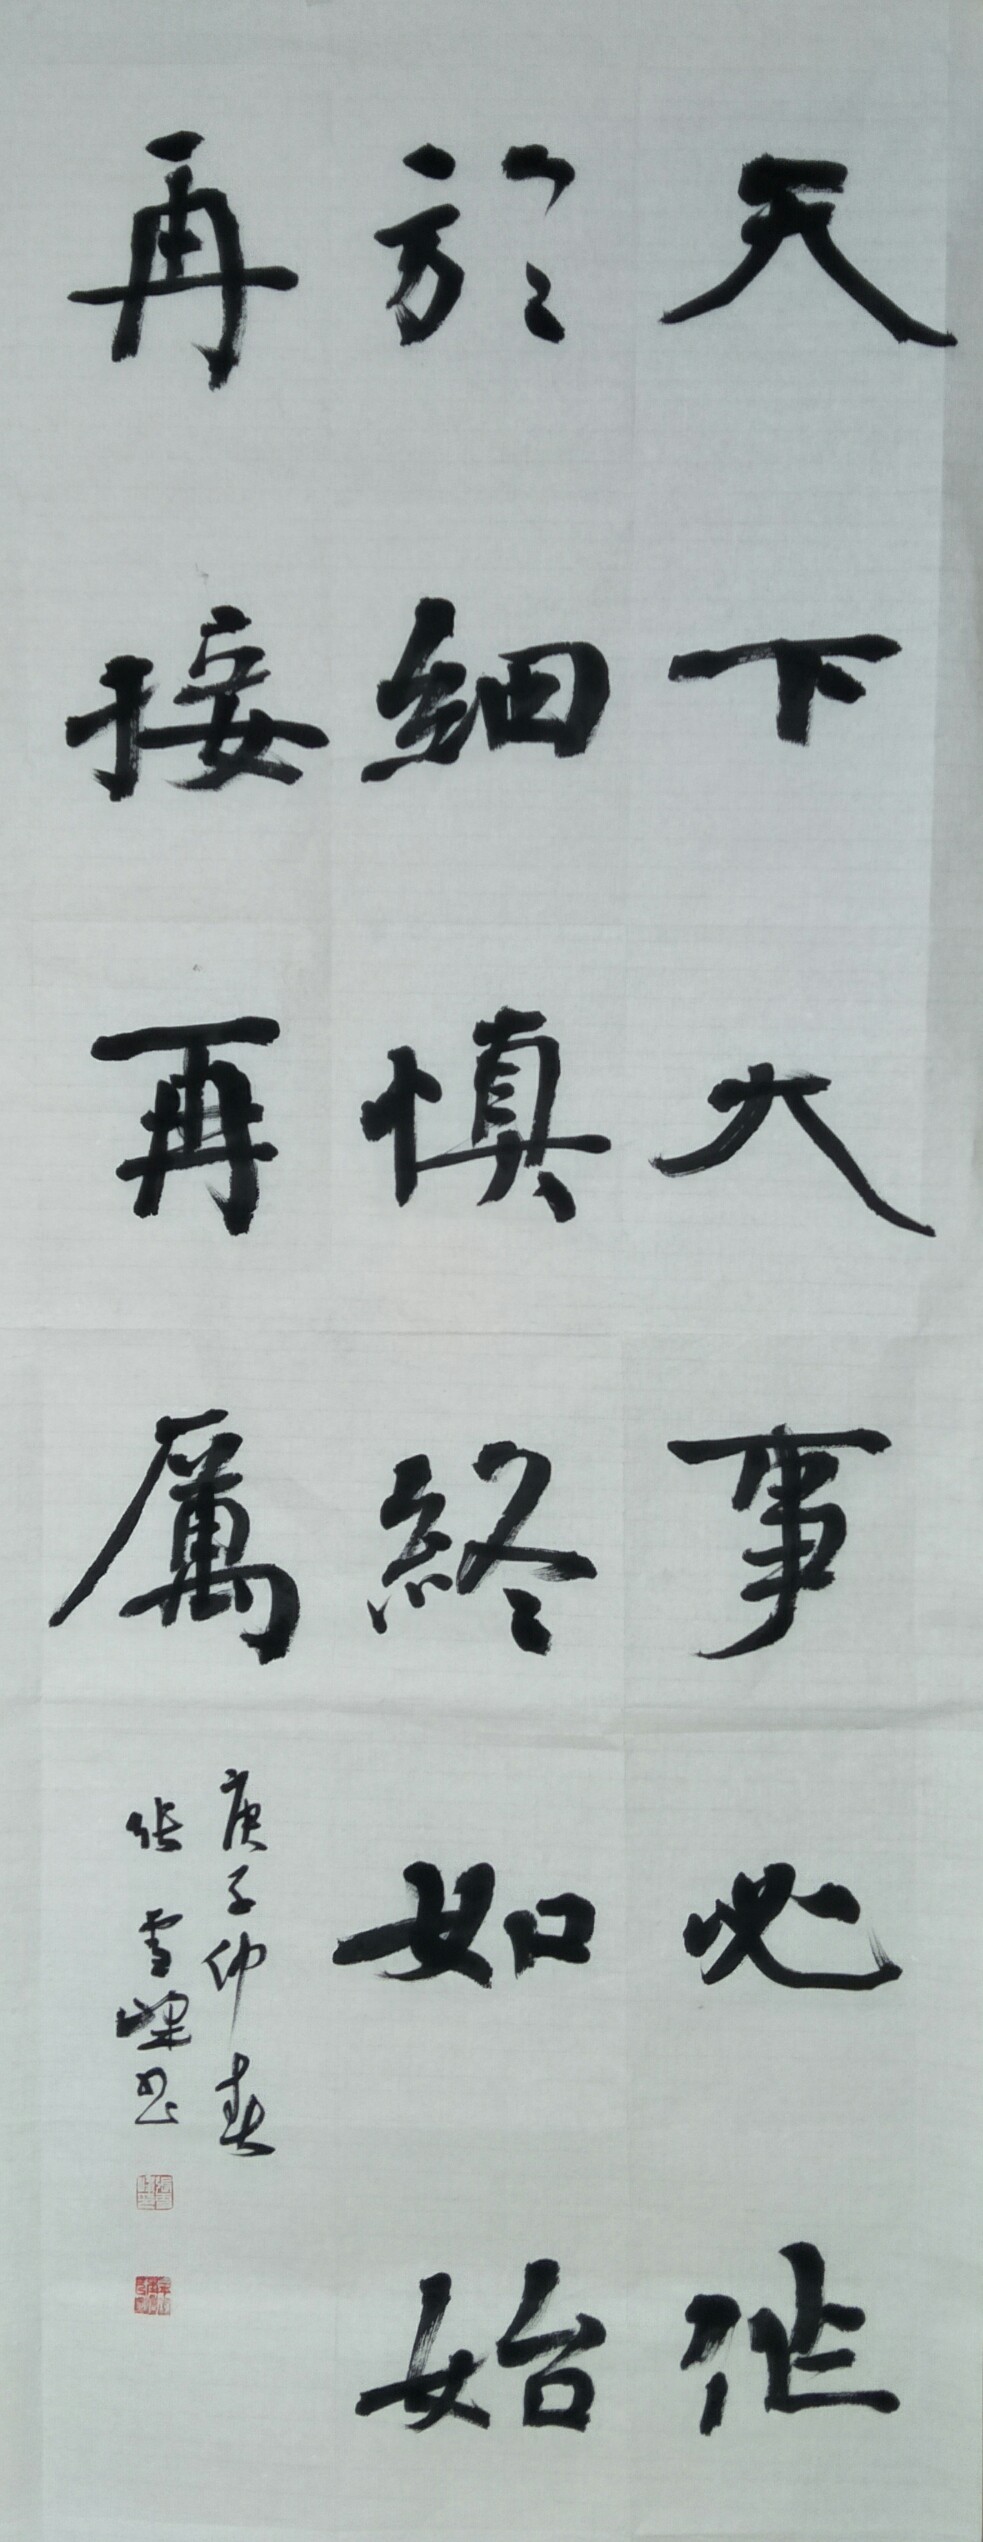 天下大事必作
於細慎終如始
再接再厲
庚子仲春
張雪峰书